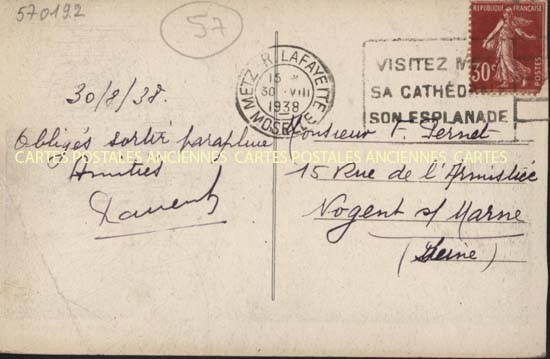 570192
57
METZ R. LAFAYETTE
15
30 VIII
1938
MOSELLE
VISITEZ M
SA CATHÉD
SON ESPLANADE
REPUBLIQUE FRANÇAISE
30c
POSTES
30/8/38.
Obligés sortir parapluie
Amitiés
Monsieur F. Pernet
15 Rue de l'Armistice
Nogent s/ Marne
(Seine)
CARTES POSTALES ANCIENNES CARTES POSTALES ANCIENNES CARTES POSTALES ANCIENNES